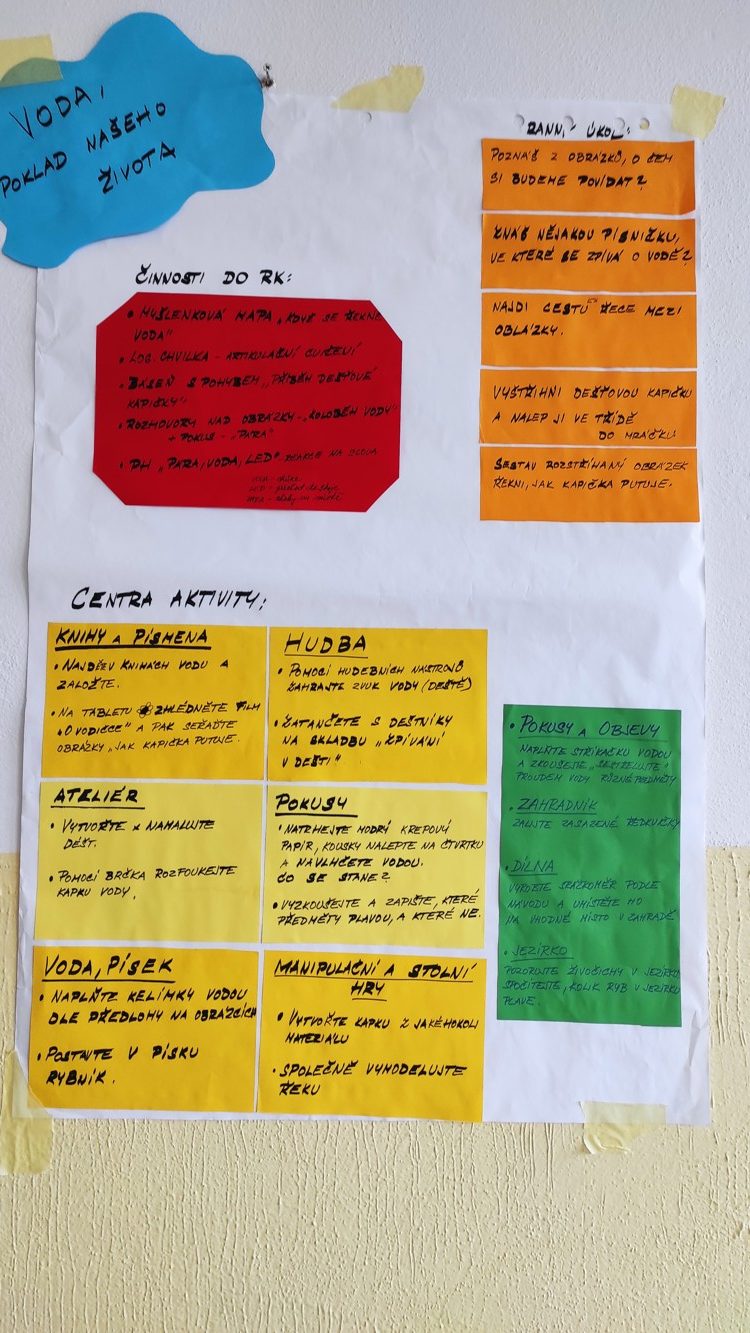 VODA,
POKLAD NAŠEHO
ŽIVOTA
RANNÍ ÚKOL:
POZNÁŠ Z OBRÁZKŮ, O ČEM
SI BUDEME POVÍDAT?
ZNÁŠ NĚJAKOU PÍSNIČKU,
VE KTERÉ SE ZPÍVÁ O VODĚ?
NAJDI CESTU ŘECE MEZI
OBLÁZKY.
VYSTŘIHNI DEŠŤOVOU KAPIČKU
A NALEP JI VE TŘÍDĚ
DO MRÁČKU
SESTAV ROZSTŘÍHANÝ OBRÁZEK
ŘEKNI, JAK KAPIČKA PUTUJE.
ČINNOSTI DO RK:
• MYŠLENKOVÁ MAPA „KDYŽ SE ŘEKNE
VODA"
• LOG. CHVILKA - ARTIKULAČNÍ CVIČENÍ
• BÁSEŇ S POHYBEM „PŘÍBĚH DEŠŤOVÉ
KAPIČKY"
• ROZHOVORY NAD OBRÁZKY - „KOLOBĚH VODY"
+ POKUS - „PÁRA"
• PH „PÁRA, VODA, LED" REAKCE NA SLOVA
CENTRA AKTIVITY:
KNIHY A PÍSMENA
• NAJDĚTE V KNIHÁCH VODU A
ZALOŽTE.
• NA TABLETU ZHLÉDNĚTE FILM
„O VODIČCE" A PAK SEŘAĎTE
OBRÁZKY „JAK KAPIČKA PUTUJE.
HUDBA
• POMOCÍ HUDEBNÍCH NÁSTROJŮ
ZAHRAJTE ZVUK VODY (DEŠTĚ)
• ZATANČETE S DEŠTNÍKY
NA SKLADBU „ZPÍVÁNÍ
V DEŠTI"
ATELIÉR
• VYTVOŘTE X NAMALUJTE
DÉŠŤ.
• POMOCÍ BRČKA ROZFOUKEJTE
KAPKU VODY.
POKUSY
• NATRHEJTE MODRÝ KREPOVÝ
PAPÍR, KOUSKY NALEPTE NA ČTVRTKU
A NAVLHČETE VODOU.
CO SE STANE?
• VYZKOUŠEJTE A ZAPIŠTE, KTERÉ
PŘEDMĚTY PLAVOU, A KTERÉ NE.
VODA, PÍSEK
• NAPLŇTE KELÍMKY VODOU
DLE PŘEDLOHY NA OBRÁZCÍCH
• POSTAVTE V PÍSKU
RYBNÍK.
MANIPULAČNÍ A STOLNÍ
HRY
• VYTVOŘTE KAPKU Z JAKÉHOKOLI
MATERIÁLU
• SPOLEČNĚ VYMODELUJTE
ŘEKU
• POKUSY A OBJEVY
NAPLŇTE STŘÍKAČKU VODOU
A ZKOUŠEJTE „SESTŘELUJTE"
PROUDEM VODY RŮZNÉ PŘEDMĚTY
• ZAHRADNÍK
ZALIJTE ZASAZENÉ ŘEDKVIČKY
• DÍLNA
VYROBTE SRÁŽKOMĚR PODLE
NÁVODU A UMÍSTĚTE HO
NA VHODNÉ MÍSTO V ZAHRADĚ
• JEZÍRKO
POZORUJTE ŽIVOČICHY V JEZÍRKU
SPOČÍTEJTE, KOLIK RYB V JEZÍRKU
PLAVE.